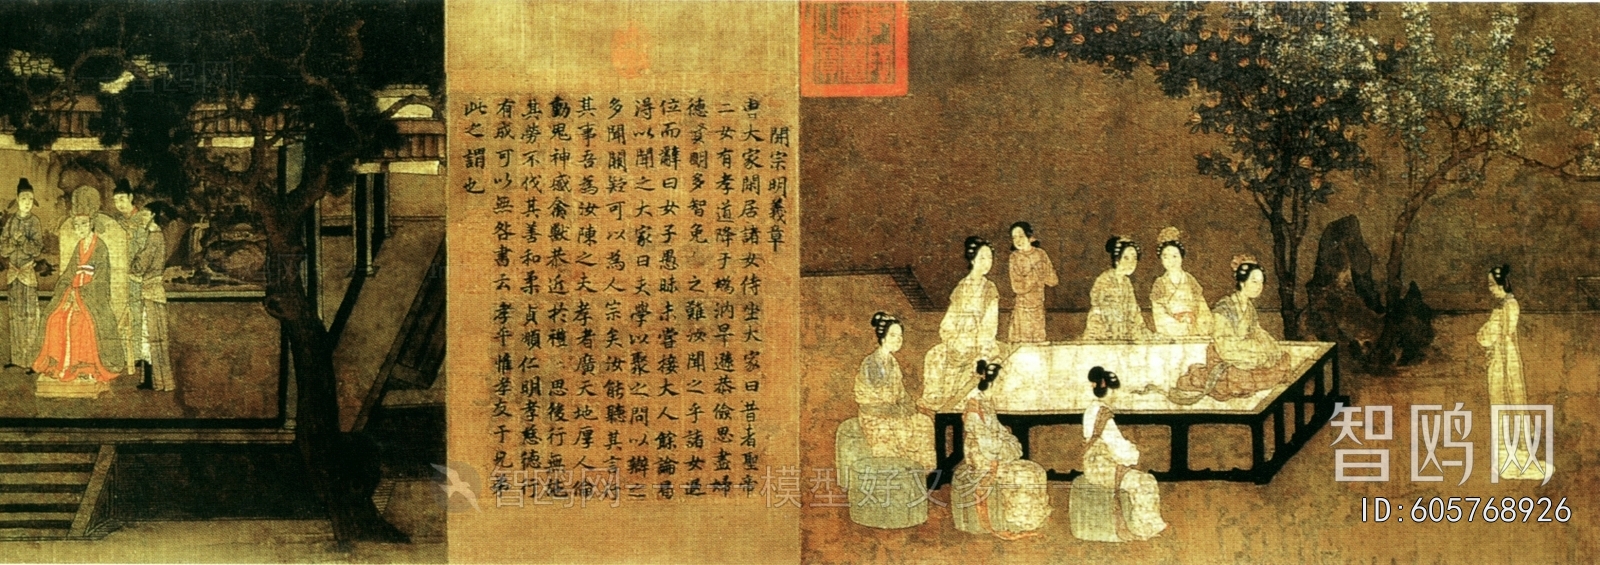 開宗明義章
曹大家閒居諸女侍坐大家曰昔者聖帝
二女有孝道降于媯汭卑遜恭儉思盡婦
德賢明多智免 之難汝聞之乎諸女退
位而辭曰女子愚昧未嘗接大人餘論曷
得以聞之大家曰夫學以聚之問以辯之
多聞闕疑可以為人宗矣汝能聽其言行
其事吾為汝陳之夫孝者廣天地厚人倫
動鬼神感禽獸恭近於禮 思後行無施
其勞不伐其善和柔貞順仁明孝慈德行
有成可以無咎書云孝乎惟孝友于兄弟
此之謂也
智鸥网
智鸥网
模型好又多
智鸥网
ID:605768926